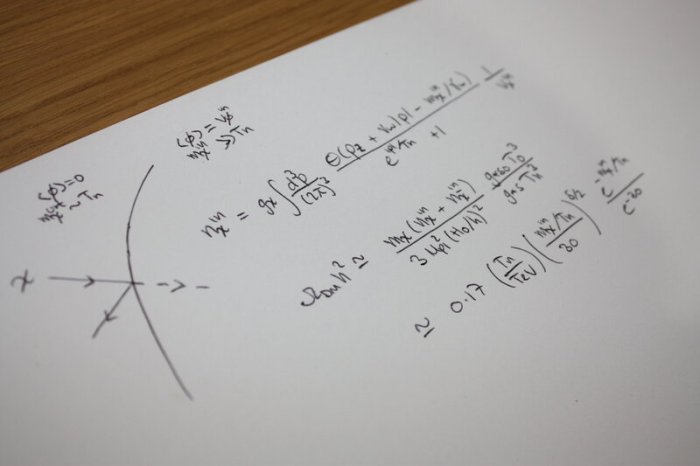 χ
⟨φ⟩ = 0
~ Tn
⟨φ⟩ = vφ^in
≫ Tn
nχ^in = gχ ∫ d³p/(2π)³ Θ(pz + vw|p| - mχ^in/γw) / (e^(|p|/Tn) + 1) 1/vχ^in
ΩDM h² ≃ mχ(nχ^in + nχ̄^in) / (3 Mpl² (H0/h)²) g*s0 T0³ / (g*s Tn³)
≃ 0.17 (Tn/TeV) (mχ^in/Tn / 30)^(5/2) e^(-mχ^in/Tn) / e^(-30)